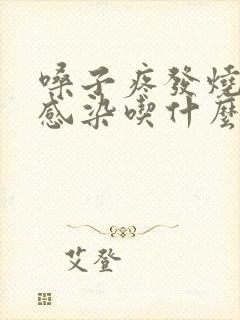 嗓子疼發燒
感染喫什麼
艾登